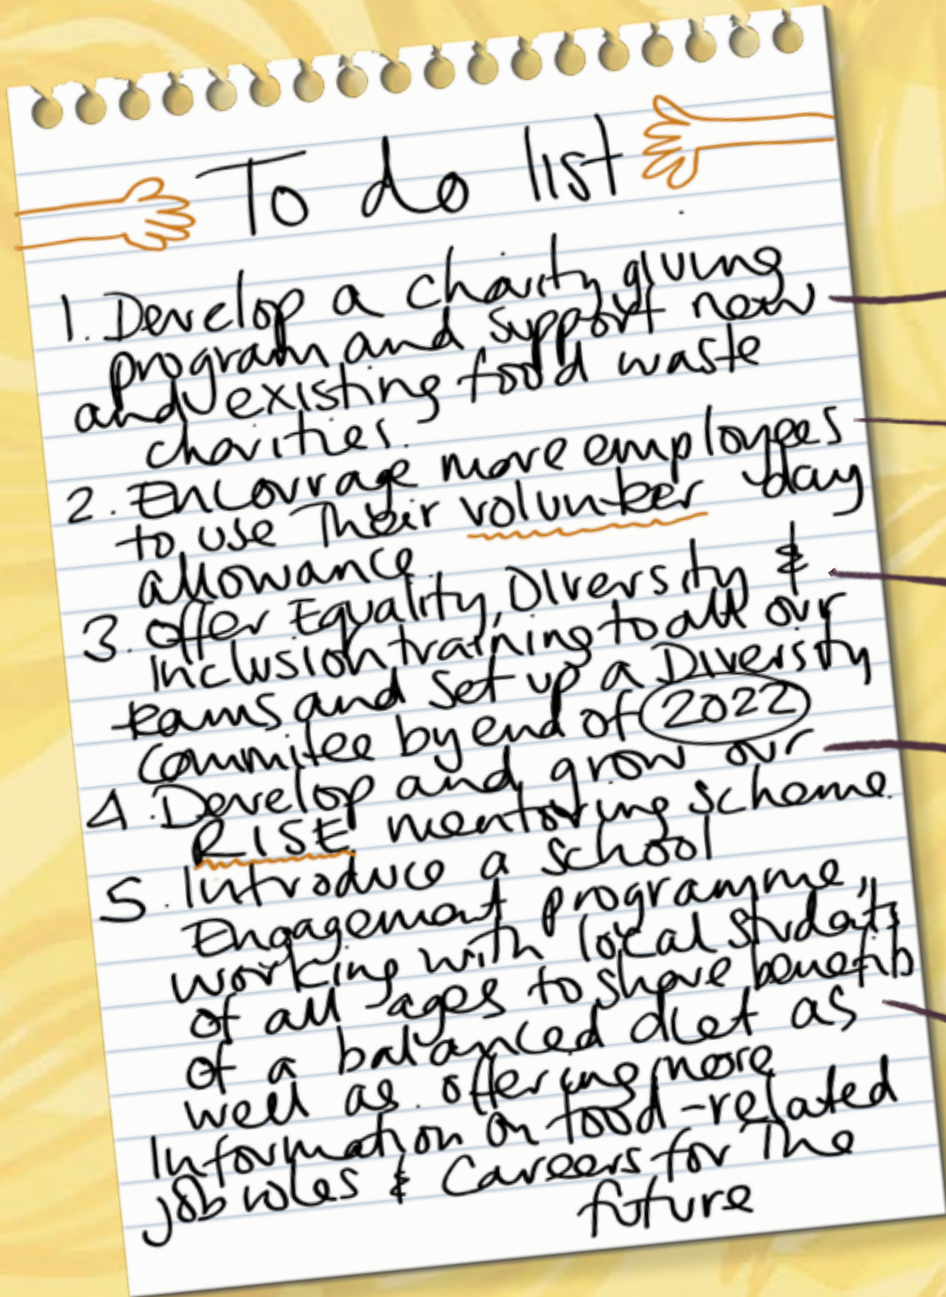 To do list
1. Develop a charity giving
program and support new
and existing food waste
charities.
2. Encourage more employees
to use Their volunteer day
allowance
3. Offer Equality, Diversity &
Inclusion training to all our
teams and set up a Diversity
Commitee by end of 2022
4. Develop and grow our
RISE mentoring scheme.
5. Introduce a school
Engagement programme,
working with local students
of all ages to share benefits
of a balanced diet as
well as offering more
Information on food-related
job roles & Careers for The
future